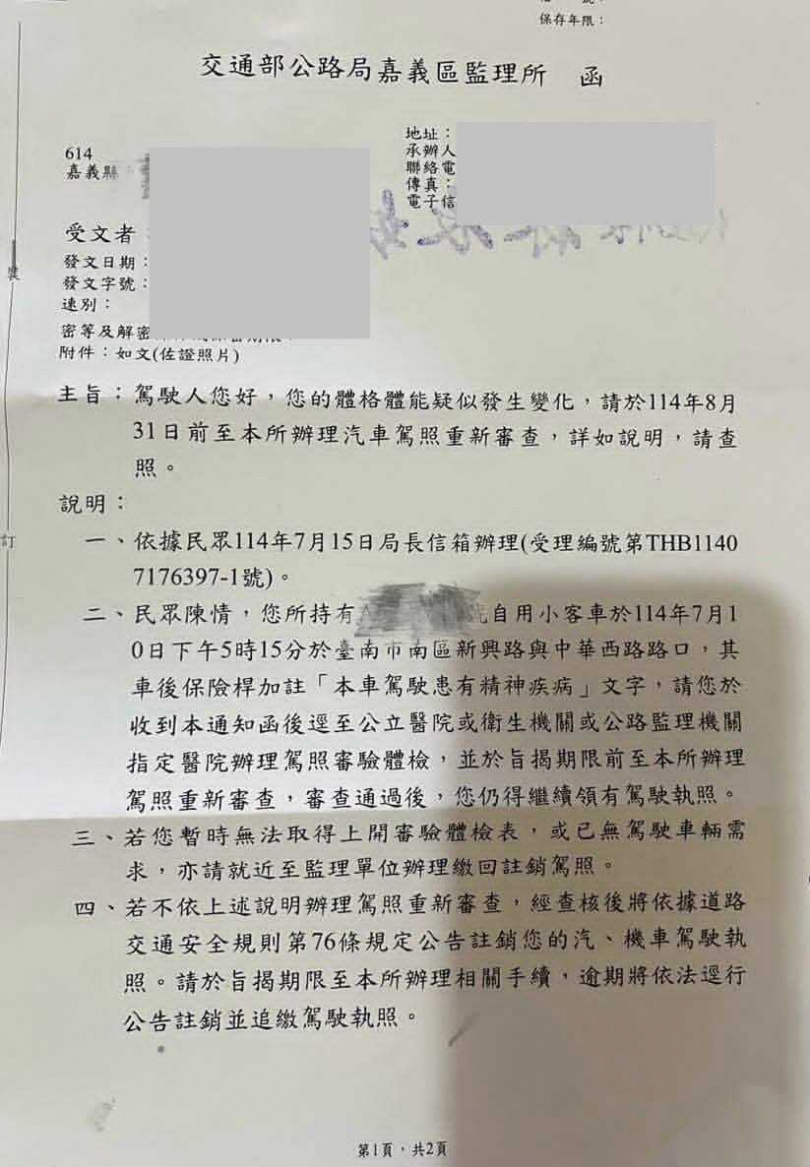 保存年限：
交通部公路局嘉義區監理所　函
地址：
614
承辦人
嘉義縣
聯絡電
傳真：
電子信
受文者
發文日期：
發文字號：
速別：
密等及解密
附件：如文(佐證照片)
主旨：駕駛人您好，您的體格體能疑似發生變化，請於114年8月
31日前至本所辦理汽車駕照重新審查，詳如說明，請查
照。
說明：
一、依據民眾114年7月15日局長信箱辦理(受理編號第THB1140
7176397-1號)。
二、民眾陳情，您所持有 自用小客車於114年7月1
0日下午5時15分於臺南市南區新興路與中華西路路口，其
車後保險桿加註「本車駕駛患有精神疾病」文字，請您於
收到本通知函後逕至公立醫院或衛生機關或公路監理機關
指定醫院辦理駕照審驗體檢，並於旨揭期限前至本所辦理
駕照重新審查，審查通過後，您仍得繼續領有駕駛執照。
三、若您暫時無法取得上開審驗體檢表，或已無駕駛車輛需
求，亦請就近至監理單位辦理繳回註銷駕照。
四、若不依上述說明辦理駕照重新審查，經查核後將依據道路
交通安全規則第76條規定公告註銷您的汽、機車駕駛執
照。請於旨揭期限至本所辦理相關手續，逾期將依法逕行
公告註銷並追繳駕駛執照。
裝
訂
第1頁，共2頁